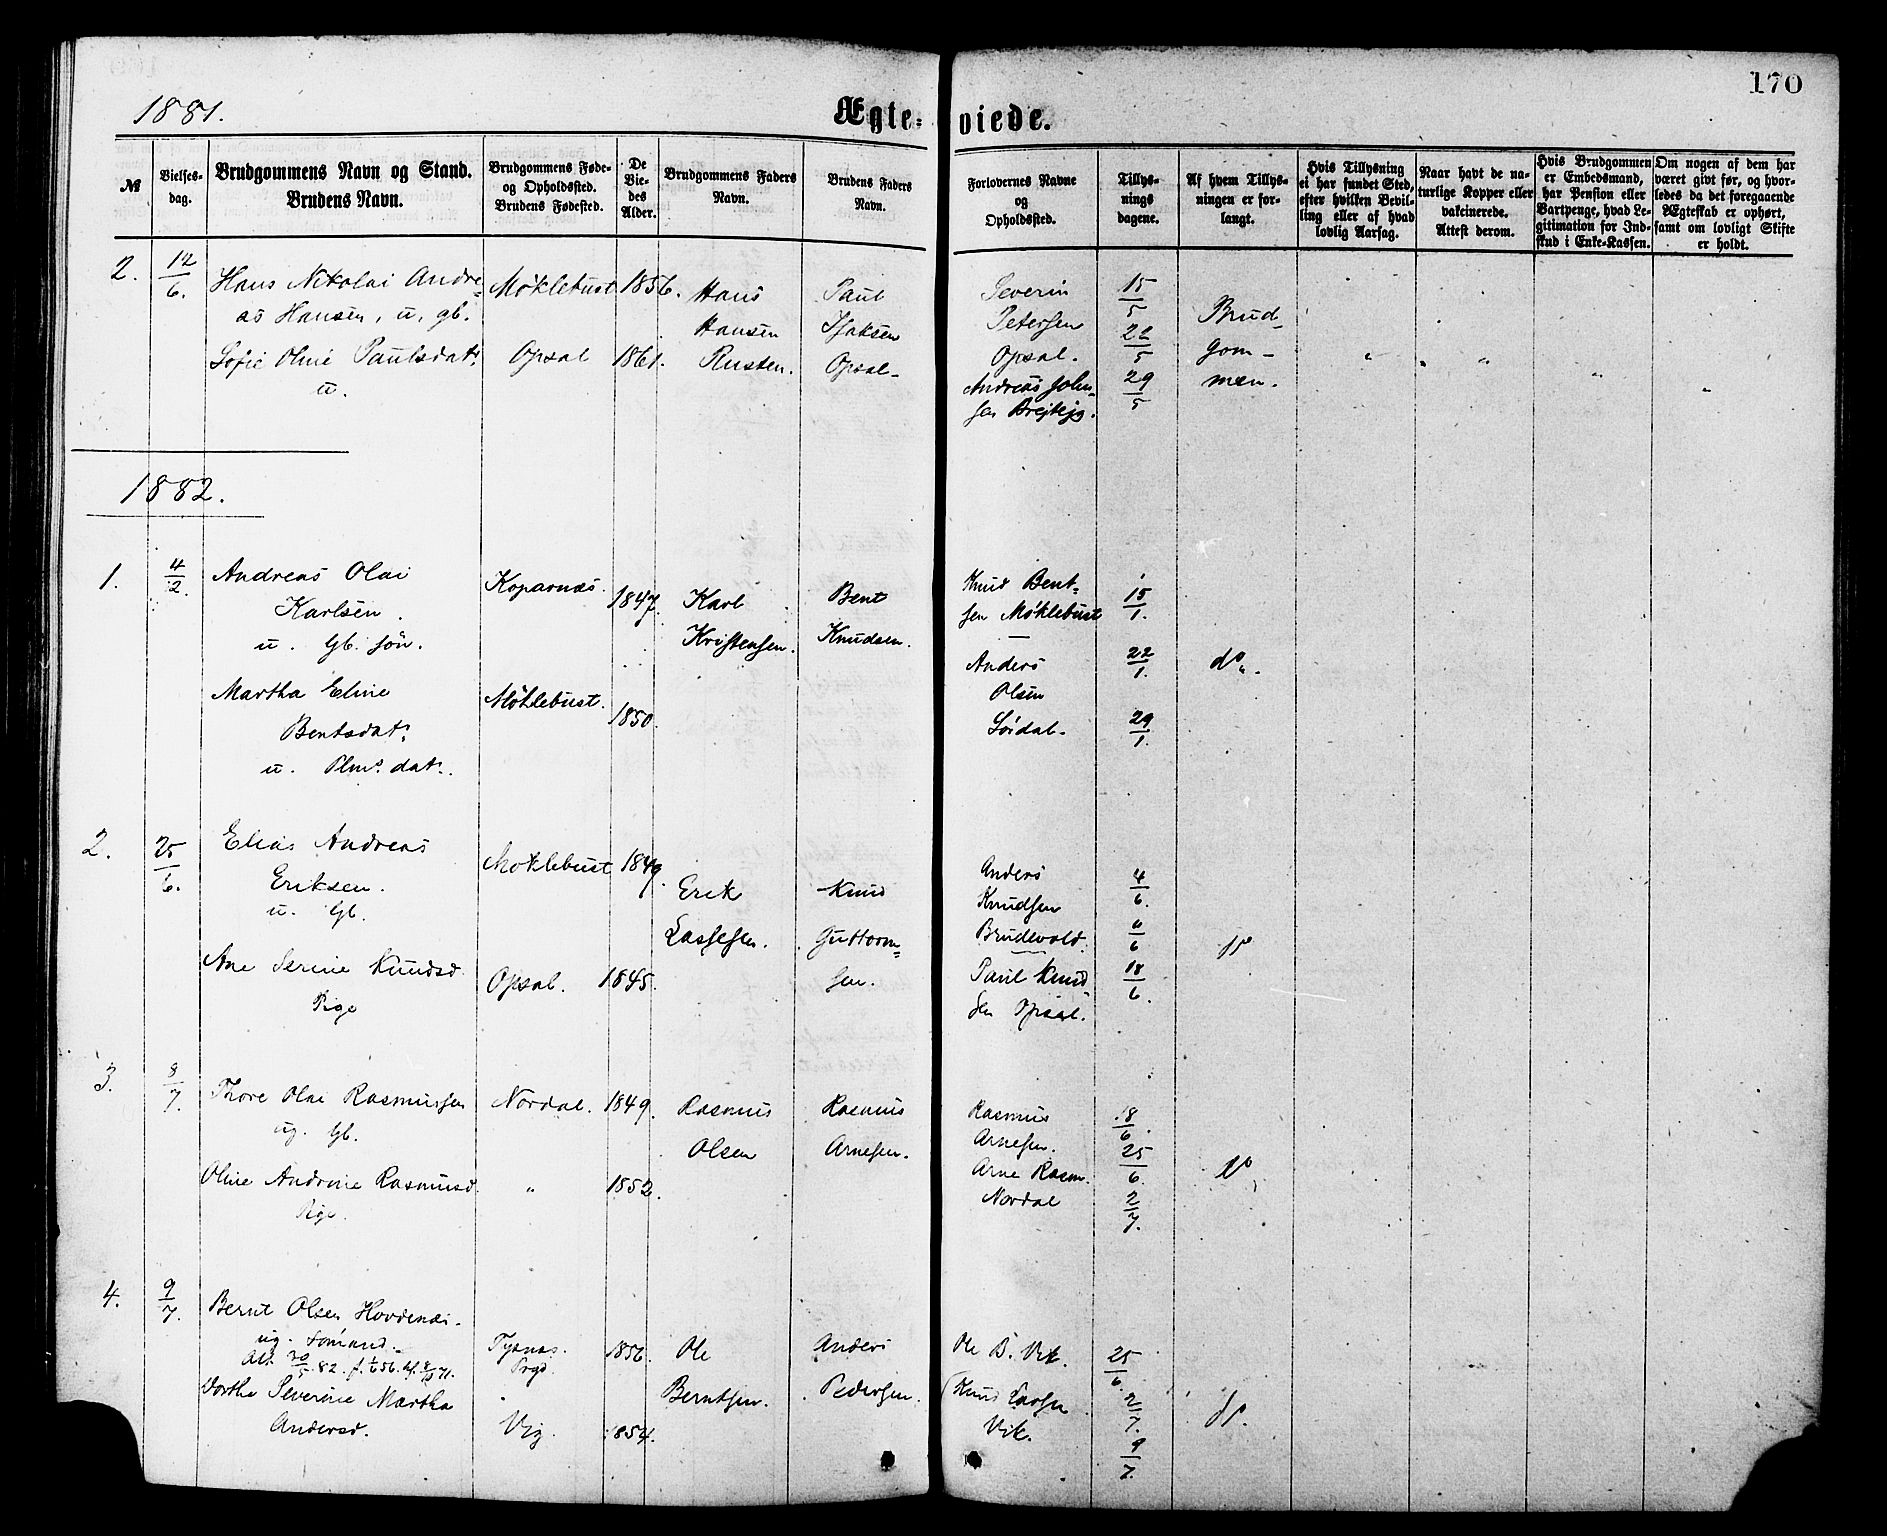 170
1881.
Ægte-viede.
№
Vielses-
dag.
Brudgommens Navn og Stand.
Brudens Navn.
Brudgommens Føde-
og Opholdssted.
Brudens Fødested.
De
Vie-
des
Alder.
Brudgommens Faders
Navn.
Brudens Faders
Navn.
Forlovernes Navne
og
Opholdssted.
Tillys-
nings
dagene.
Af hvem Tillys-
ningen er for-
langt.
Hvis Tillysning
ei har fundet Sted,
efter hvilken Bevil-
ling eller af hvad
lovlig Aarsag.
Naar havt de na-
turlige Kopper eller
vakcinerede.
Attest derom.
Hvis Brudgommen
er Embedsmand,
har Pension eller
Vartpenge, hvad Le-
gitimation for Ind-
skud i Enke-Kassen.
Om nogen af dem har
været givt før, og hvor-
ledes da det foregaaende
Ægteskab er ophørt,
samt om lovligt Skifte
er holdt.
2.
12/6.
Hans Nikolai Andre=
as Hansen, u, gb.
Sofie Oline Paulsdatr
u.
Møklebust
Opsal
1856.
1861.
Hans
Hansen
Rusten.
Paul
Isaksen
Opsal-
Severin
Petersen
Opsal.
Andreas John-
sen
15/5
22/5
29/5
Brud-
gom-
men.
1882.
1.
4/2.
Andreas Olai
Karlsen.
u. Gb. søn.
Martha Eline
Bentsdatr
u. datr.
Koparnæs.
Møklebust.
1847.
1850.
Karl
Kristensen.
Bent
Knudsen.
Knud Bent-
sen Møklebust
Anders
Olsen
Sørdal.
15/1.
22/1.
29/1.
do.
2.
25/6.
Elias Andreas
Eriksen.
u. Gb.
Ane Serine Knudsd.
Pige
Møklebust
Opsal.
1849.
1845.
Erik
Lassesen.
Knud
Guttorm=
sen.
Anders
Knudsen
Brudevold.
Paul Knud
sen Opsal.
4/6.
11/6
18/6.
do
3.
8/7.
Thore Olai Rasmussen
ug. Gb.
Oline Andrine Rasmusd.
Pige.
Nordal.
"
1849.
1852.
Rasmus
Olsen
Rasmus
Arnesen.
Rasmus
Arnesen.
Arne Rasm.
Nordal
18/6.
25/6.
2/7.
do
4.
9/7.
Bernt Olsen Hovdenæs.
ug. Sømand.
Dorthe Severine Martha
Andersd.
Tysnæs.
Prgd
Vig.
1856.
1854.
Ole
Berntsen.
Anders
Pedersen.
Ole B. Vik.
Knud Larsen
Vik.
25/6
2/7.
9/7.
do.